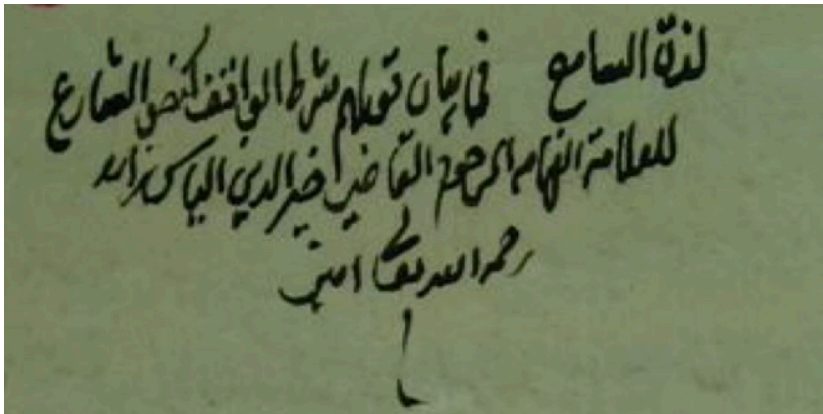 لذة السامع في بيان قولهم شرط الواقف كنص الشارع
للعلامة الفهامه المرحوم القاضي خير الدين الياس زاده
رحمه الله تعالى امين